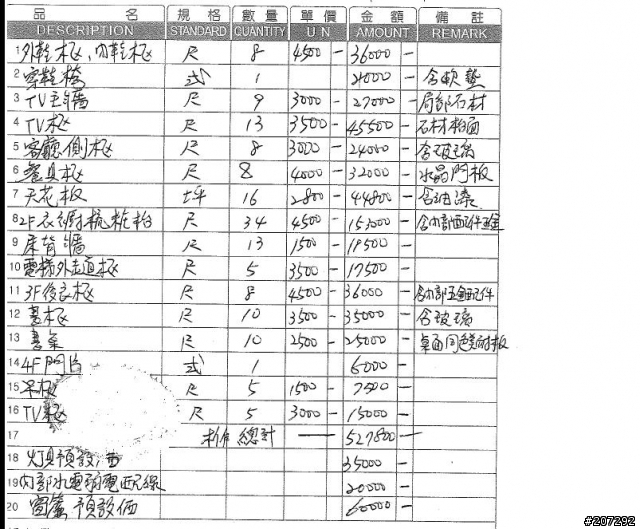 品名 規格 數量 單價 金額 備註
DESCRIPTION STANDARD QUANTITY U N AMOUNT REMARK
1 外鞋柜、內鞋柜 尺 8 4500- 36000-
2 穿鞋椅 式 1 4000- 含軟墊
3 TV主牆 尺 9 3000- 27000- 局部石材
4 TV柜 尺 13 3500- 45500- 石材枱面
5 客廳側柜 尺 8 3000- 24000- 含玻璃
6 餐具柜 尺 8 4000- 32000- 水晶門板
7 天花板 坪 16 2800- 44800- 含油漆
8 2F衣櫥梳粧枱 尺 34 4500- 153000- 含內部五金
9 床背牆 尺 13 1500- 19500-
10 電梯外走道柜 尺 5 3500- 17500-
11 3F後衣柜 尺 8 4500- 36000- 含內部五金配件
12 書柜 尺 10 3500- 35000- 含玻璃
13 書桌 尺 10 2500- 25000- 桌面同色美耐板
14 4F門片 式 1 6000-
15 吊柜 尺 5 1500- 7500-
16 TV柜 尺 5 3000- 15000-
17 總計 — 527800-
18 燈具預設 35000-
19 內部水電弱電配線 20000-
20 窗簾預設価 60000-
#207292